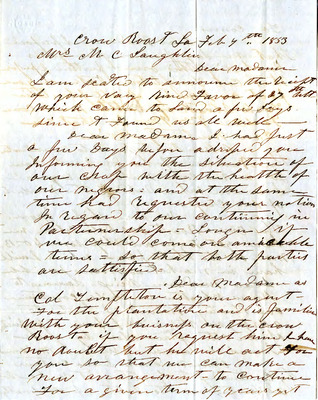 Crow Roost La Feb 7th 1853
Mrs M C Laughlin
Dear Madame
I am seated to announce the receipt
of your very kind Favor of 27th
Which came to hand a few Days
since & Found us all well
Dear Madame I had just
a few Days before adressed you
Informing you the situation of
our Crop with the health of
our negroes and at the same
time had requested your notion
In regard to our continuing in
Partnership Longer if
we could come on amicable
terms so that both parties
are satisfied.
Dear Madame as
Col Templeton is your agent
For the plantation and is familiar
With your buisness on the Crow
Roost if you request him I have
no doubt but he will act For
you so that we can make a
new arrangement to continue
For a given term of years yet